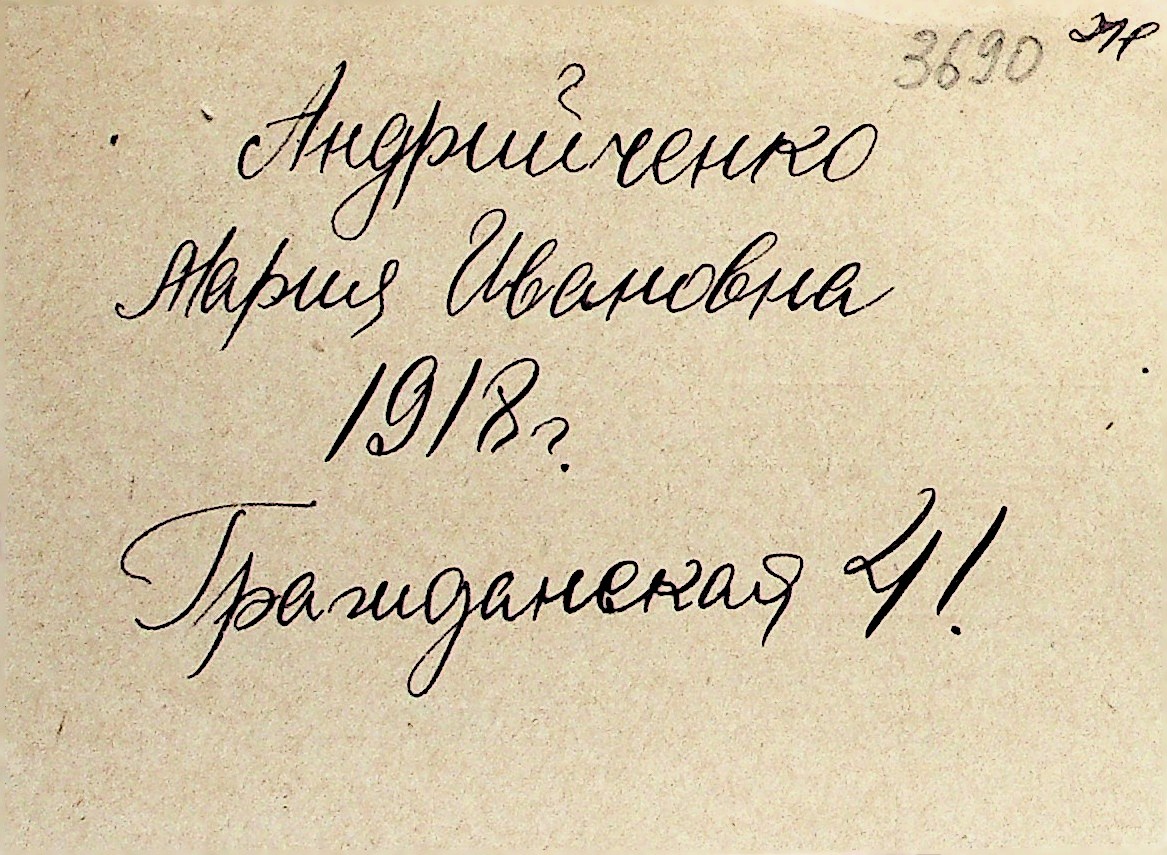 3690
Андрийченко
Мария Ивановна
1918г.
Гражданская 41.